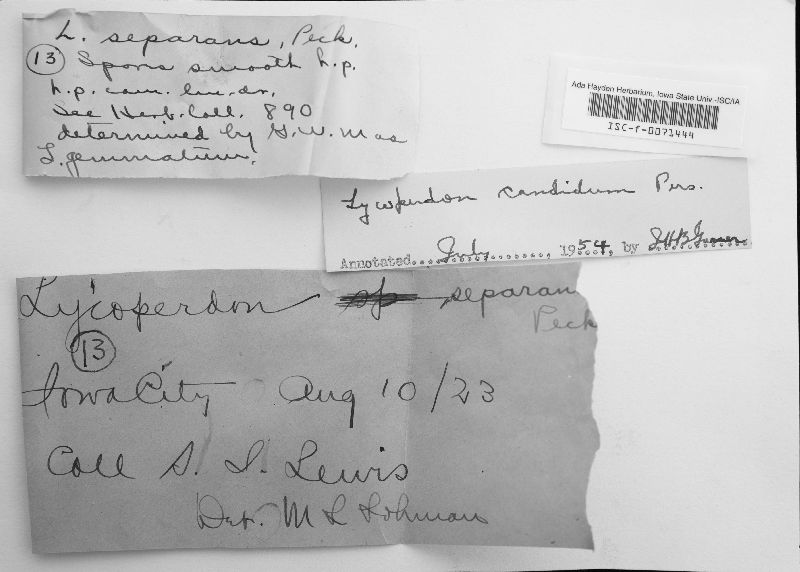 L. separans, Peck.
(13) Spores smooth h.p.
h.p. cam. lu. dr.
See Herb. Coll. 890
determined by G.W.M as
L. gemmatum.
Ada Hayden Herbarium, Iowa State Univ -ISC/IA
ISC-f-0071444
Lycoperdon candidum Pers.
Annotated....July........, 1954, by
Lycoperdon sp separan
Peck
(13)
Iowa City Aug 10/23
Coll S. I. Lewis
Det. M L Lohman